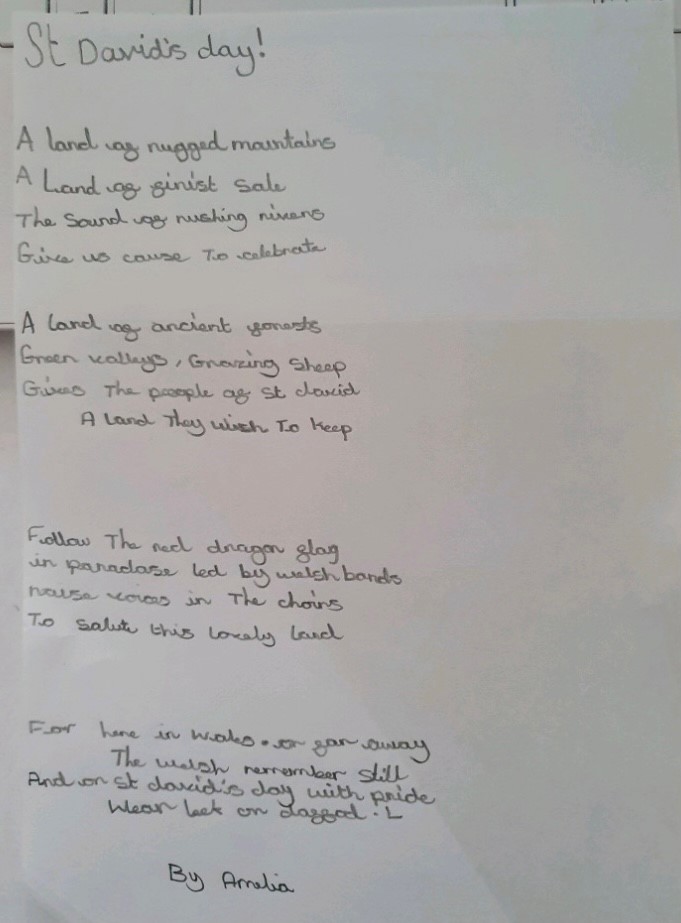 St David's day!
A land of rugged mountains
A Land of finist sale
The Sound of rushing rivers
Give us cause To celebrate
A land of ancient forests
Green valleys, Grazing Sheep
Gives The people of St david
A Land They wish To keep
Follow The red dragon flag
in paradase led by welsh bands
raise voices in The choirs
To salute this Lovely Land
For here in wales or far away
The welsh remember still
And on St david's day with pride
Wear leek or daffod.L
By Amelia